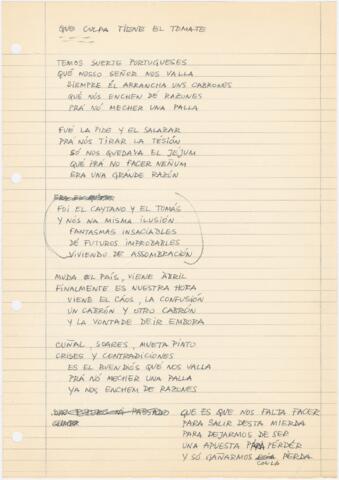 QUE CULPA TIENE EL TOMATE
TEMOS SUERTE PORTUGUESES
QUÉ NOSSO SEÑOR NOS VALLA
SIEMPRE ÉL ARRANCHA UNS CABRONES
QUÉ NÓS ENCHEN DE RAZONES
PRÁ NÓ MECHER UNA PALLA
FUÉ LA PIDE Y EL SALAZAR
PRA NÓS TIRAR LA TESIÓN
SÓ NOS QUEDAVA EL JEJUM
QUÉ PRÁ NO FACER NEÑUM
ERA UNA GRÁNDE RAZÓN
FOI EL CAYTANO Y EL TOMÁS
Y NÓS NA MISMA ILUSIÓN
FANTASMAS INSACIÁBLES
DÉ FUTUROS IMPROBABLES
VIVIENDO DE ASSOMBRACIÓN
MUDA EL PAÍS, VIENE ÁBRIL
FINALMENTE ES NUESTRA HORA
VIENE EL CÁOS, LA CONFUSIÓN
UN CABRÓN Y OTRO CABRÓN
Y LA VONTADE DE IR EMBORA
CUÑAL, SOARES, MUETA PINTO
CRISES Y CONTRADICIONES
ES EL BUEN DIÓS QUE NOS VALLA
PRÁ NÓ MECHER UNA PALLA
YA NOS ENCHEM DE RAZONES
QUE ES QUE NOS FALTA FACER
PARA SALIR DESTA MIERDA
PARA DEJARMOS DE SER
UNA APUESTA PÁRA PÉRDÉR
Y SÓ GAÑARMOS PERDA
COU LA